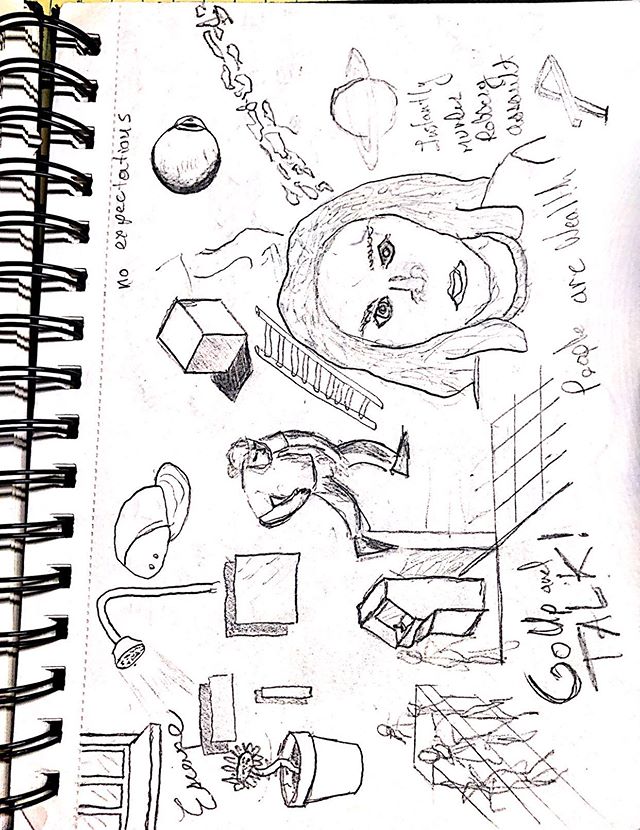 no expectations
Escape
Instantly
Murder
Robbery
assault
Go Up and
TALK!
People are Wealth